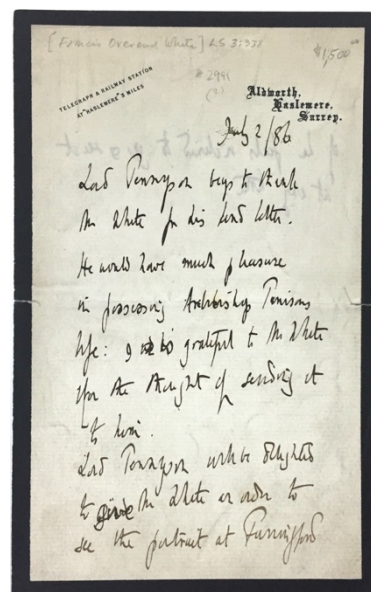 [Francis Overend White] LS 3:338
$1,500
#2981
(2)
TELEGRAPH & RAILWAY STATION
AT HASLEMERE 3 MILES
Aldworth,
Haslemere,
Surrey.
July 2/86
Lord Tennyson begs to thank
Mr White for his kind letter.
He would have much pleasure
in possessing Archbishop Tenisons
life: & is grateful to Mr White
for the thought of sending it
to him.
Lord Tennyson will be delighted
to give Mr White an order to
see the portrait at Farringford